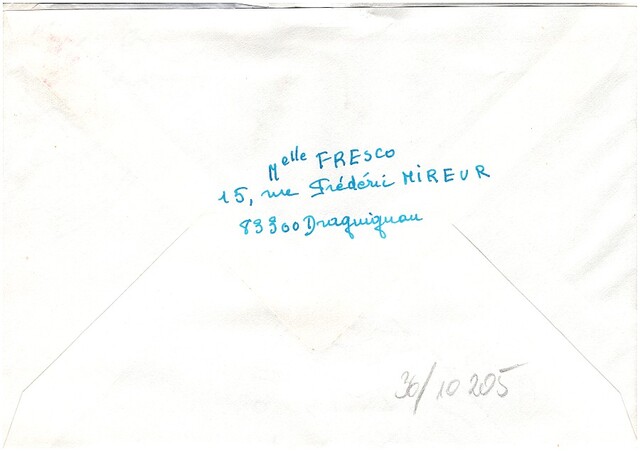 Melle FRESCO
15, rue Frédéric MIREUR
83300 Draguignan
30/10 205